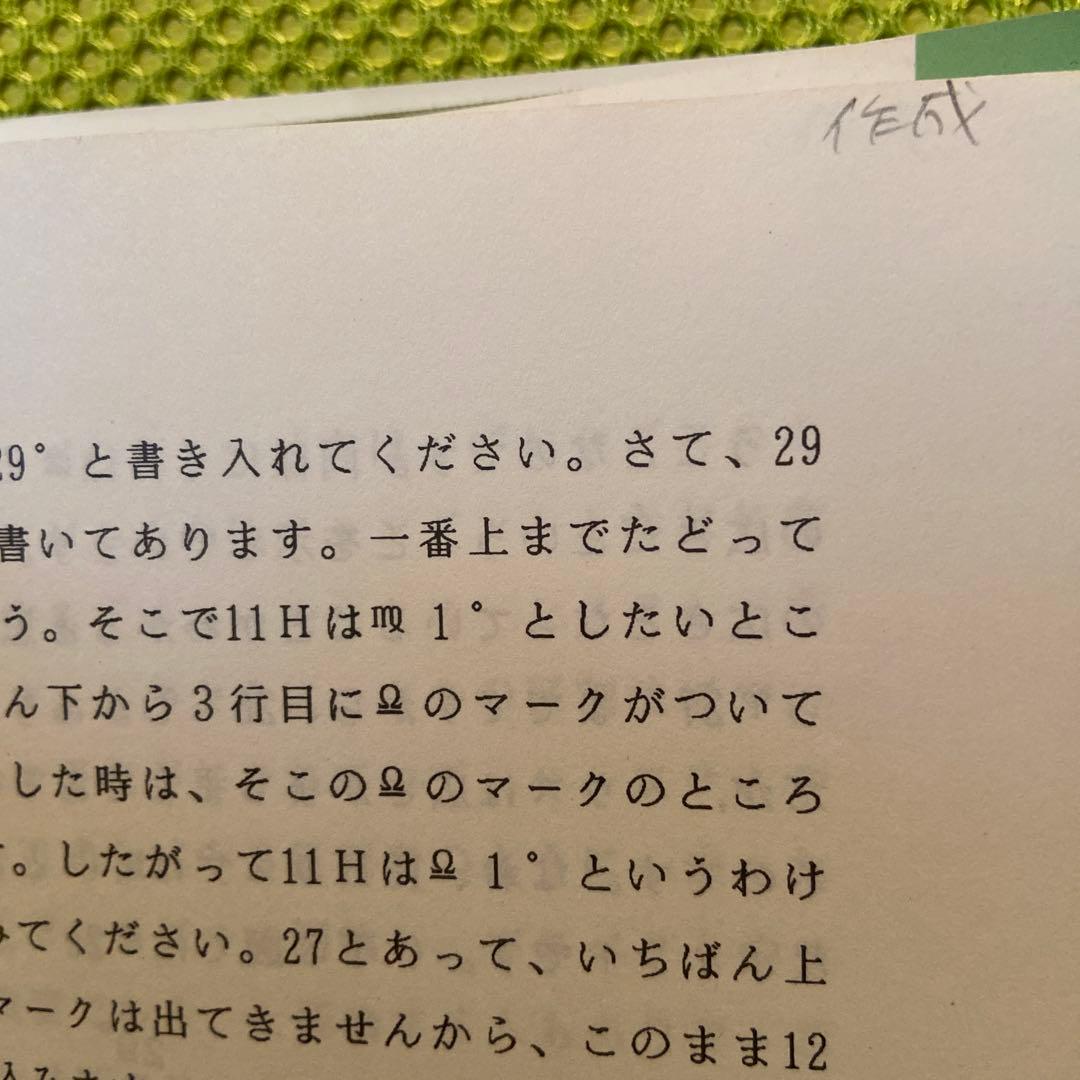 作成
29°と書き入れてください。さて、29
書いてあります。一番上までたどって
う。そこで11Hは♍1°としたいとこ
ん下から3行目に♎のマークがついて
した時は、そこの♎のマークのところ
。したがって11Hは♎1°というわけ
てください。27とあって、いちばん上
マークは出てきませんから、このまま12